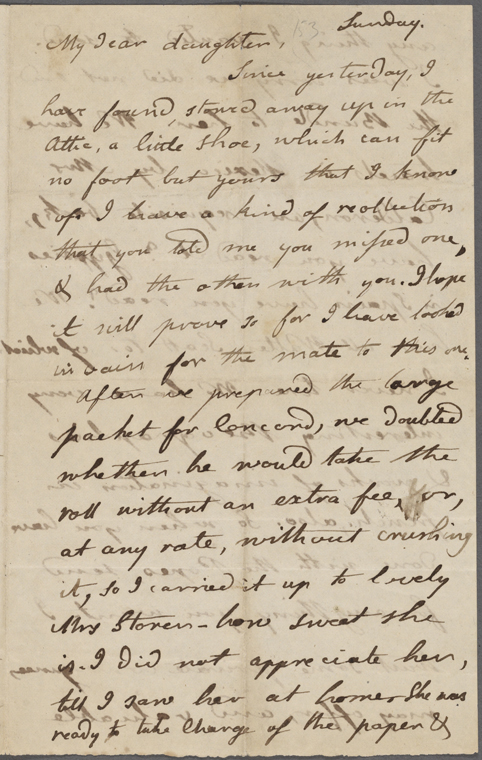 153
Sunday.
My dear daughter,
Since yesterday, I
have found, stowed away up in the
Attic, a little shoe, which can fit
no foot but yours that I know
of. I have a kind of recollection
that you told me you missed one,
& had the other with you. I hope
it will prove so for I have looked
in vain for the mate to this one.
After we prepared the large
packet for Concord, we doubted
whether he would take the
roll without an extra fee, or,
at any rate, without crushing
it, so I carried it up to lovely
Mrs Storer - how sweet she
is. I did not appreciate her,
till I saw her at home. She was
ready to take charge of the paper &